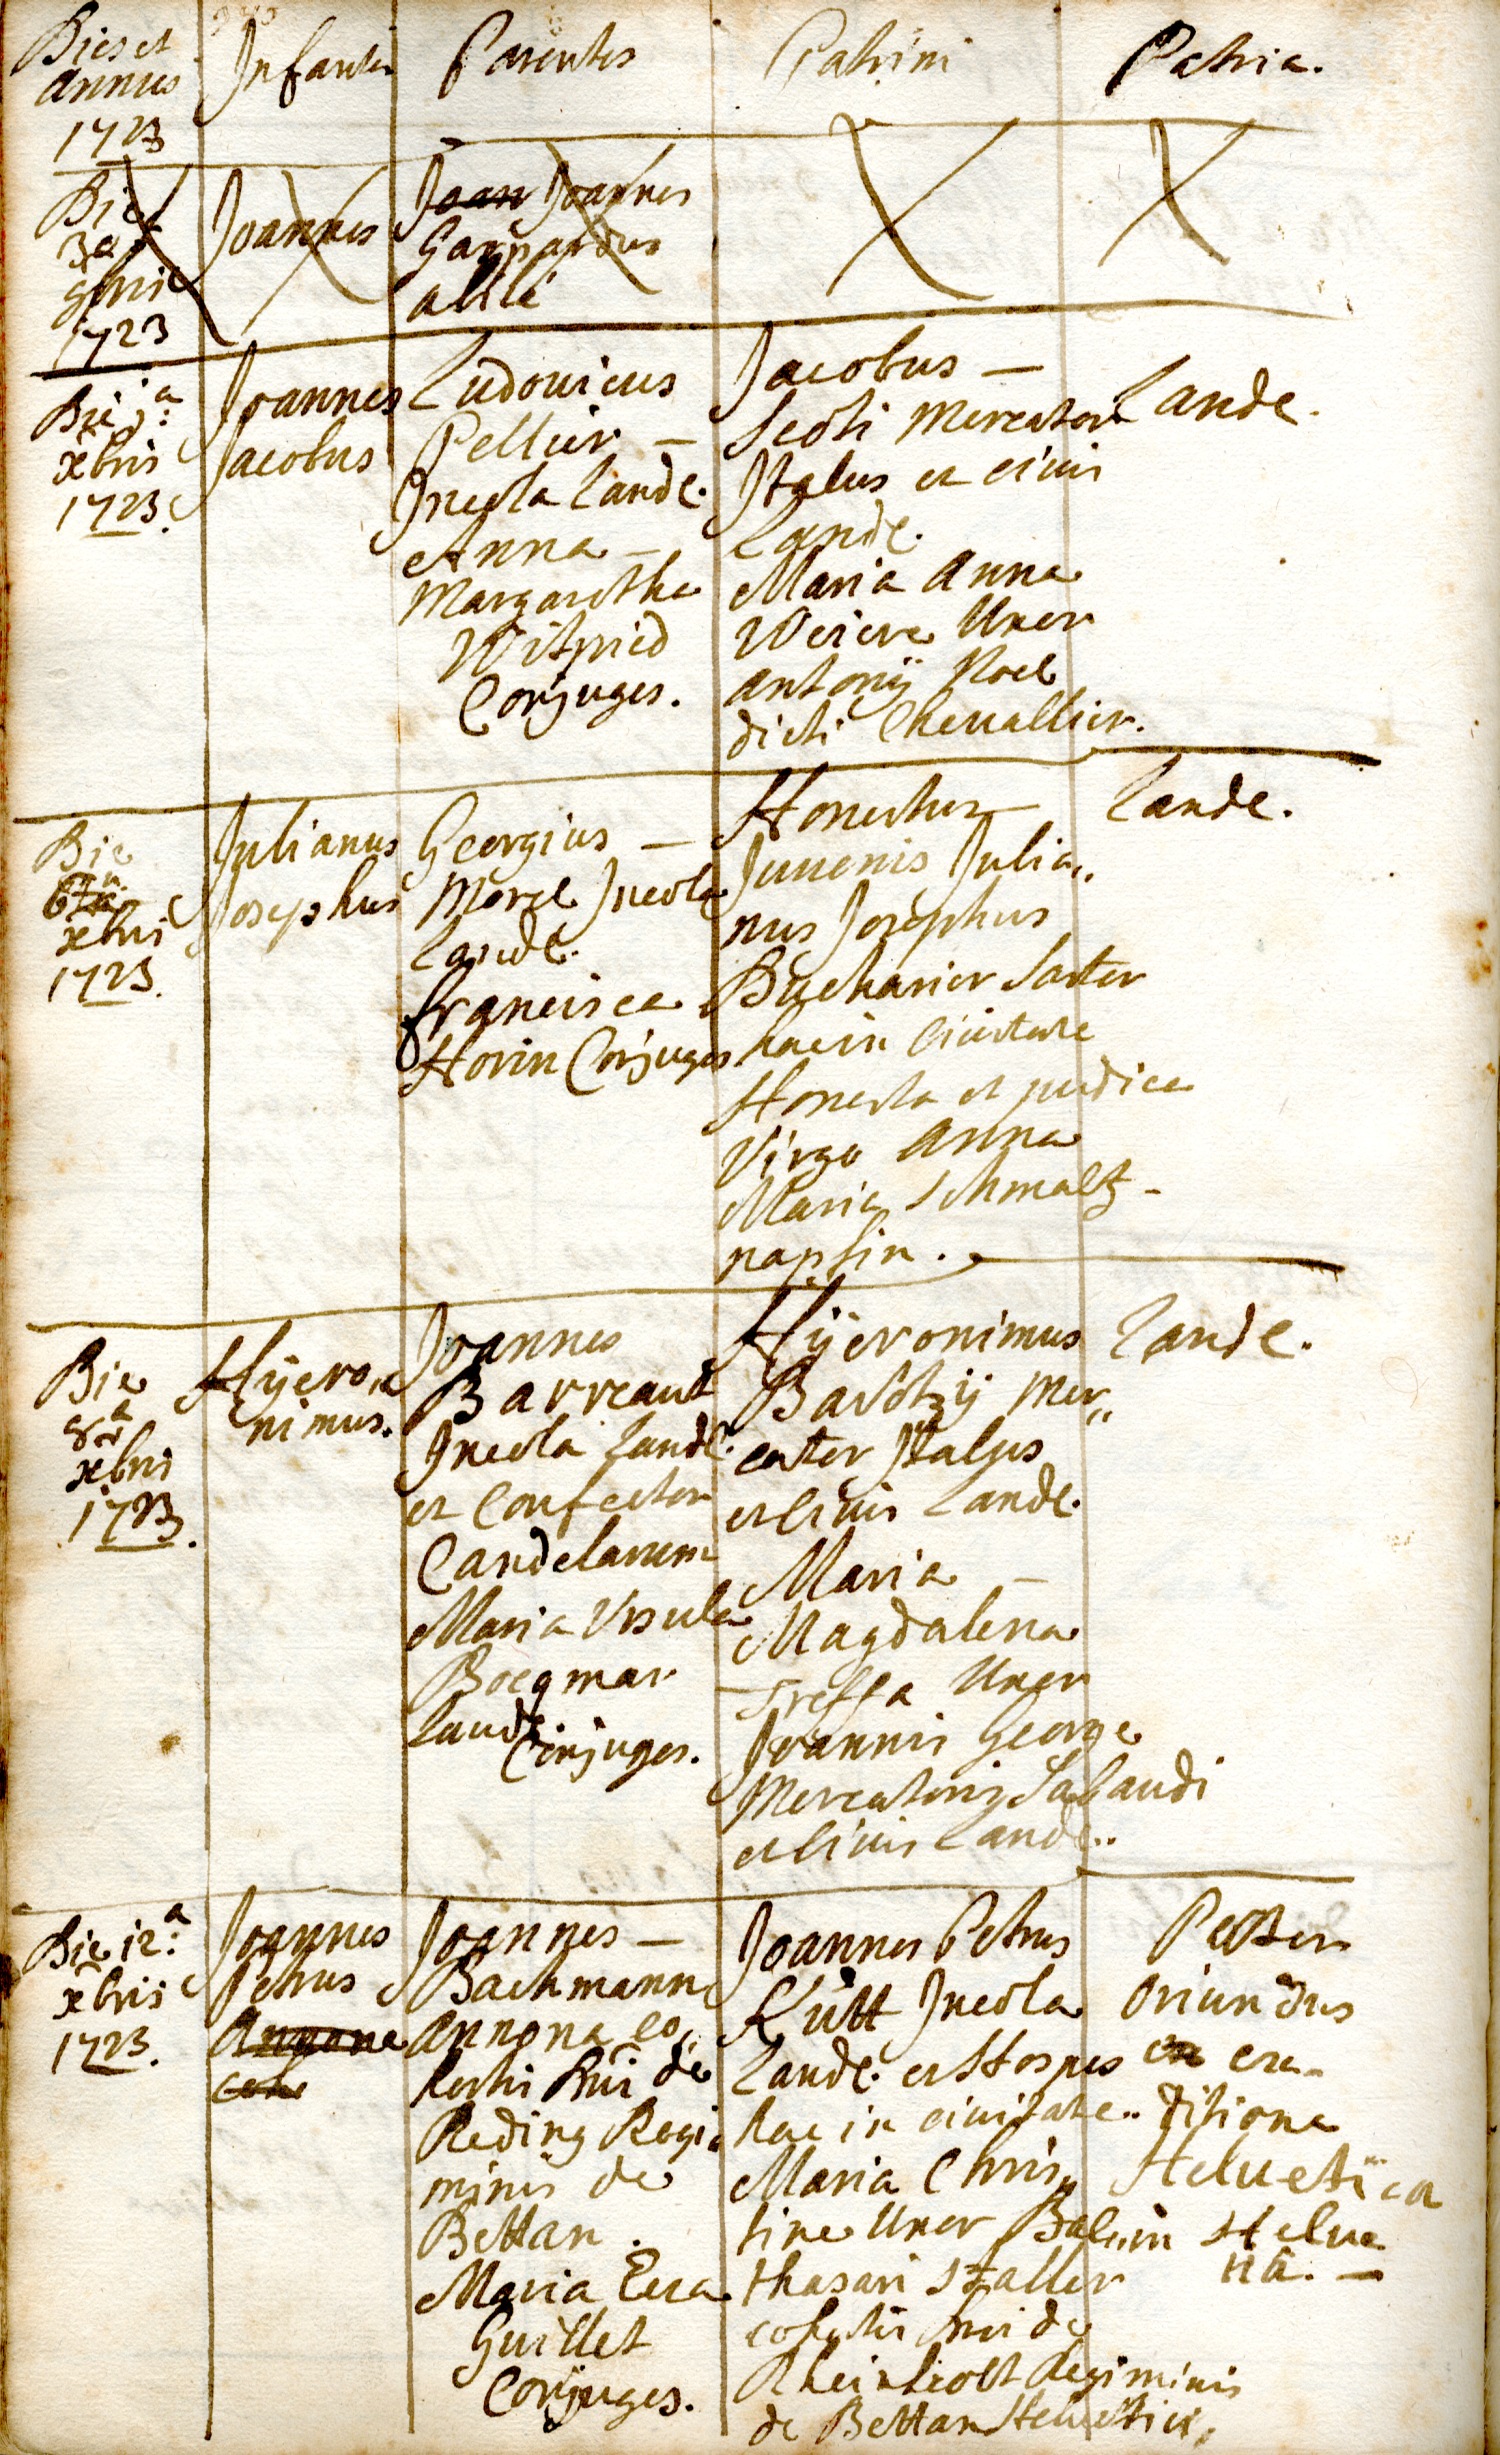 Dies et
Annus
1723
Infantes
Parentes
Patrini
Patria.
Die
3a
9bris
1723
Joannes
Joan Joannes
Gaspardus
allié
Die 1a:
xbris
1723.
Joannes
Jacobus
Ludovicus
Pellier —
Incola Land.
Anna —
Margaretha
Witfried
Conjuges.
Jacobus —
Scoti Mercator
Italus et civis
Land.
Maria Anna
Weiere Uxor
Antonij Noel
dicti Chevallier.
Lande.
Die
6ta
xbris
1723.
Julianus
Josephus
Georgius —
Morel Incola
Land.
francisca
Horin Conjuges
Honestus —
Juvenis Julia„
nus Josephus
Bucharier Sartor
hac in Civitate
Honesta et pudica
Virgo Anna
Maria Schmaltz-
napfin.
Lande.
Die
8va
xbris
1723.
Hÿero„
nimus.
Joannes
Barreaut
Incola Land.
et Confector
Candelarum
Maria Ursula
Bocqmar
Land.
Conjuges.
Hÿeronimus
Bartolzij Mer„
cator Italus
et Civis Land.
Maria —
Magdalena
Treffa Uxor
Joannis George
Mercatoris Sabaudi
et Civis Land..
Lande.
Die 12a:
xbris
1723.
Joannes
Petrus
Annona
coh
Joannes —
Bachmann
Annona co„
hortis Dni de
Reding Regi„
minis de
Bettan.
Maria Eva
Guillet
Conjuges.
Joannes Petrus
Kütt Incola
Land. et Hospes
hac in civitate..
Maria Chris„
tine Uxor Bal„
thasari Staller
cohortis Dni de
Rheinholt Regiminis
de Bettan Helvetici,
Pater
oriundus
ex ex
ditione
Helvetica
in Helve
tia. —